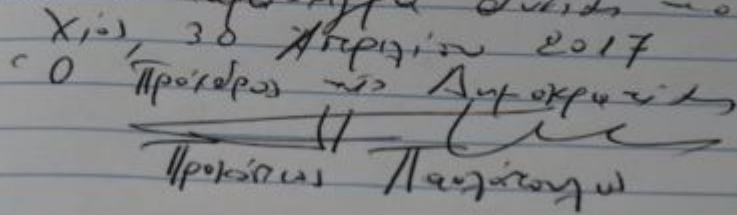 Χίος, 30 Απριλίου 2017
Ὁ Πρόεδρος της Δημοκρατίας
Προκόπιος Παυλόπουλος